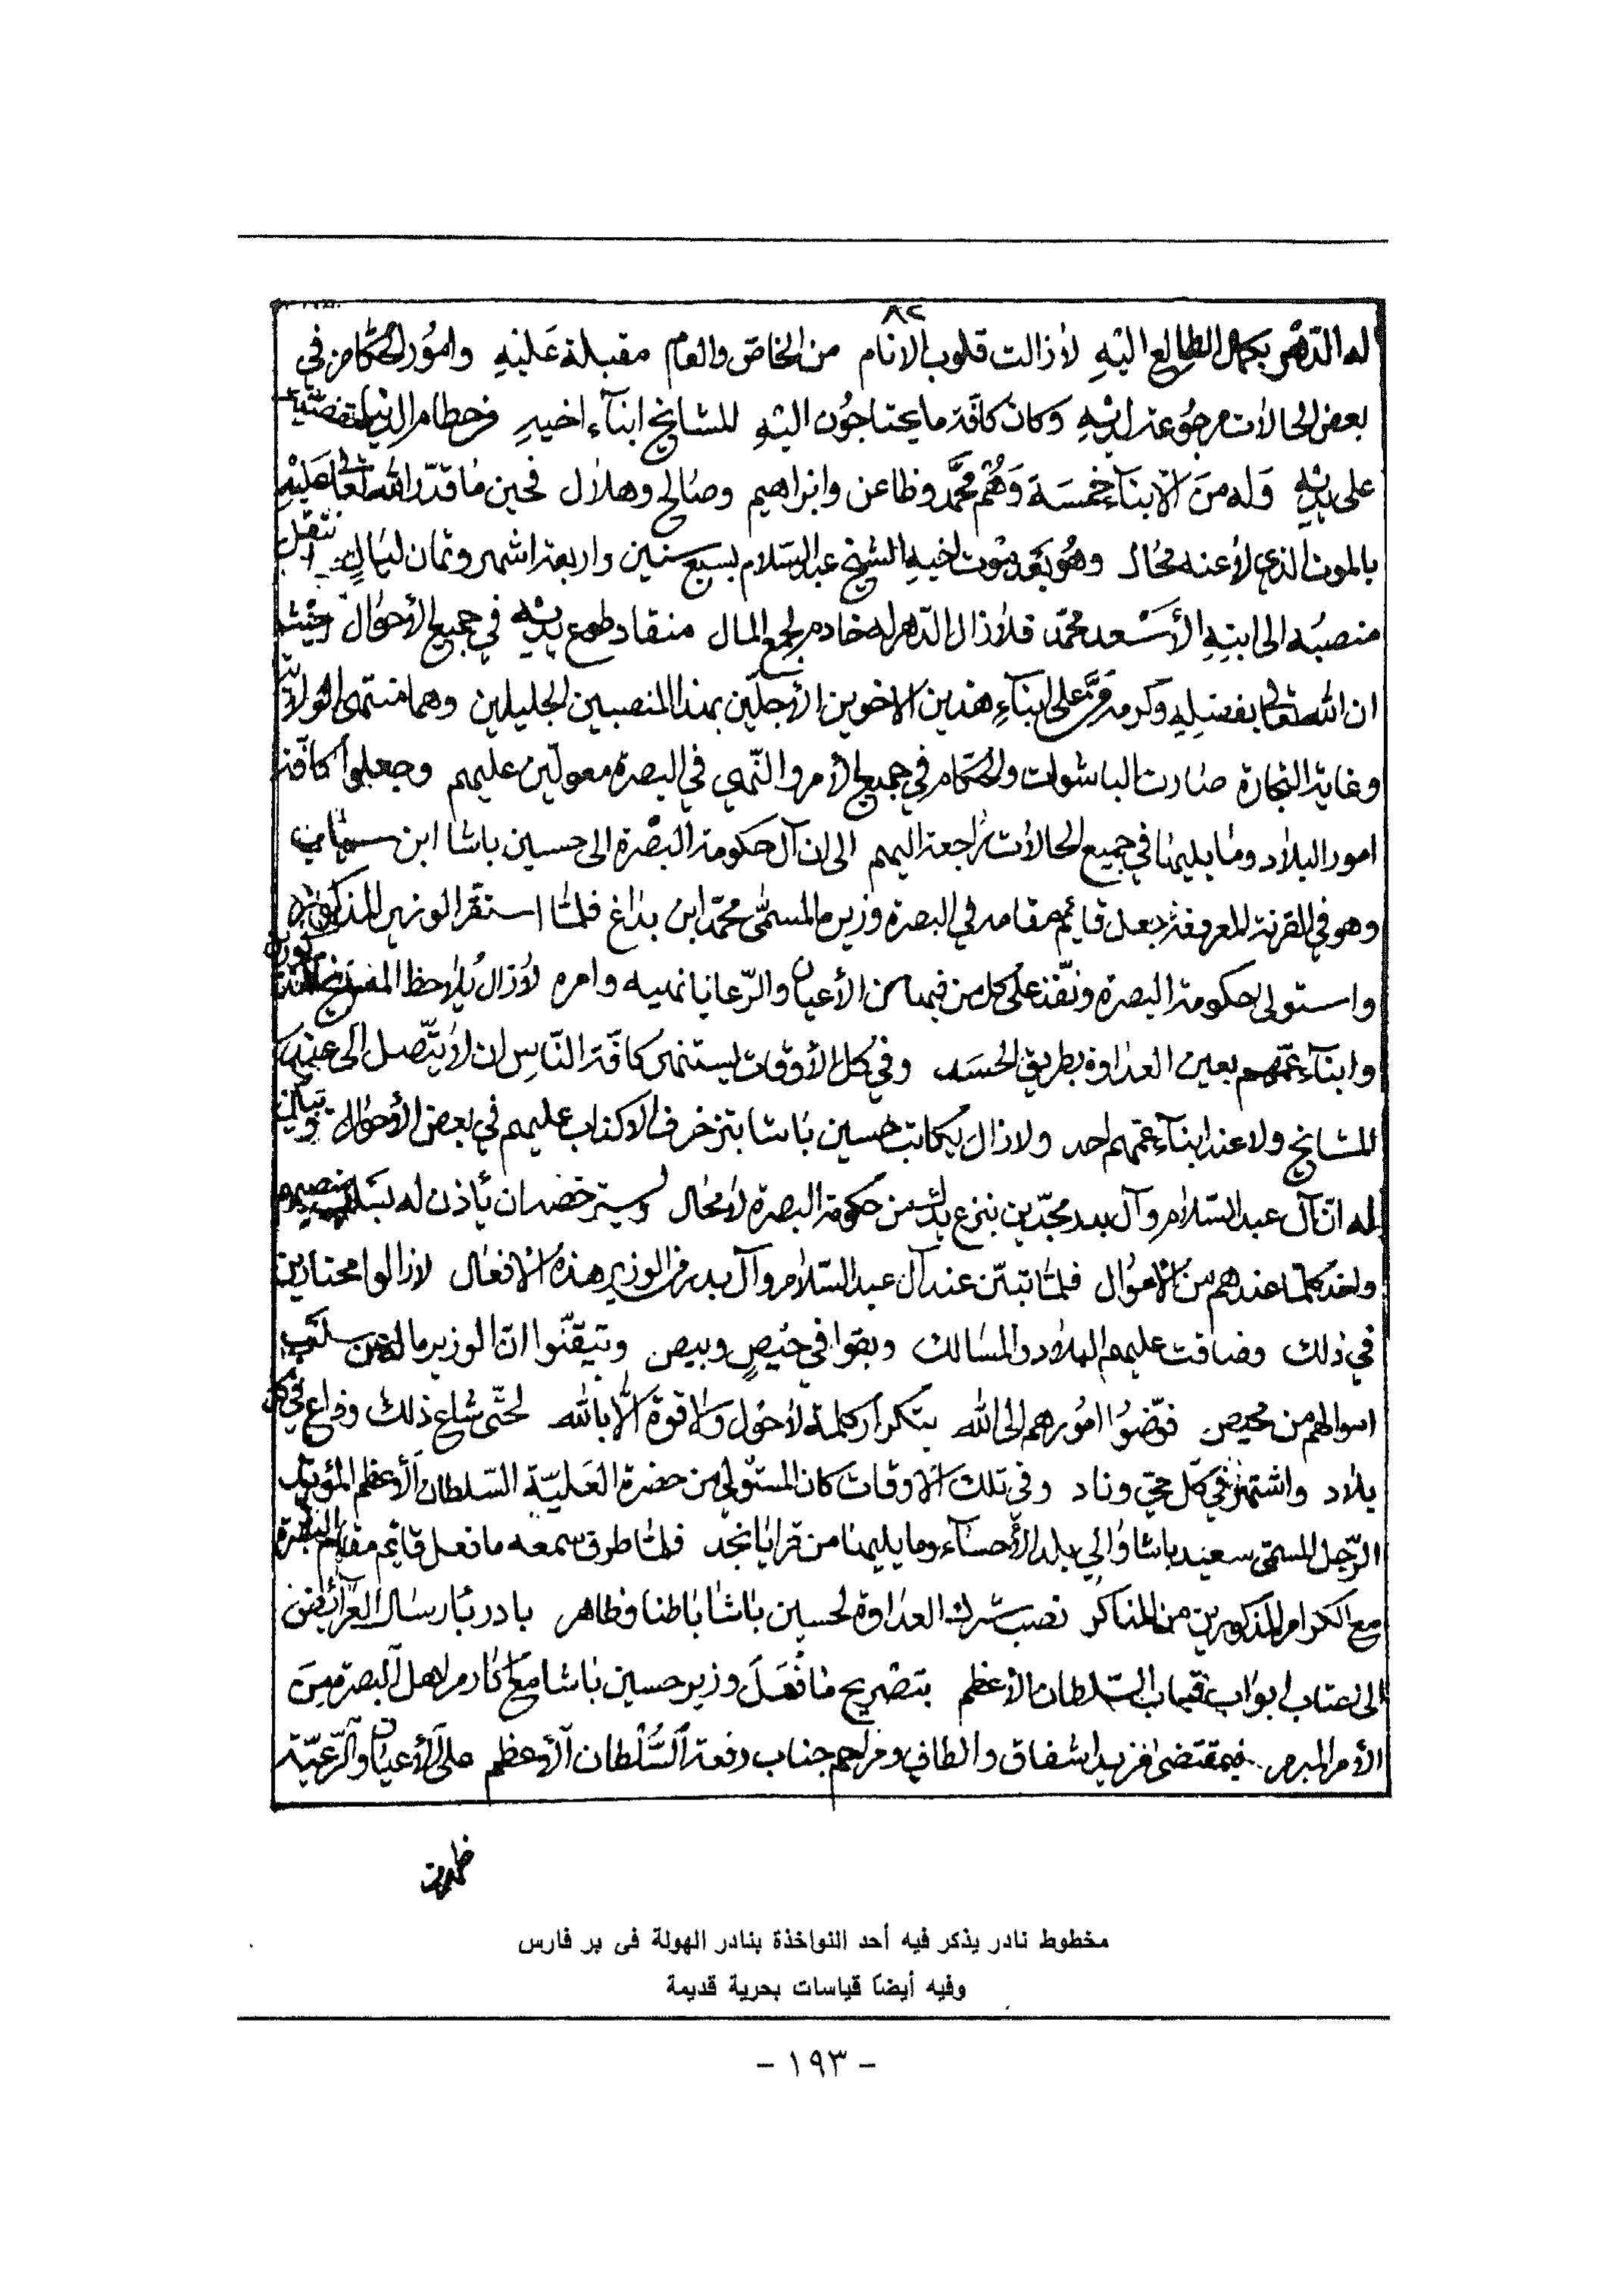 ٨٢
له الدّهر بكمال الطالع اليه لا زالت قلوب الانام من الخاصّ والعام مقبلة عليه وامور الحكام في
بعض الحالات مرجوعة لديه وكان كافة ما يحتاجون اليه المشايخ ابنآء اخيه من حطام الدنيا
على يديه وله من الابنآء خمسة وهم محمّد وظاعن وابراهيم وصالح وهلال فحين ما قدّر الله تعالى عليه
بالموت الذي لا عنه محال وهو بعد موت اخيه الشيخ عبد السلام بسبع سنين واربعة اشهر وثمان ليال انتقل
منصبه الى ابنه الأسعد محمّد فلا زال الدهر له خادم لجمع المال منقاد طوع يديه في جميع الأحوال وحيث
ان الله تعالى بفضله وكرمه منّ على ابنآء هذين الاخوين الأجلّين بهذا المنصبين الجليلين وهما منتهى الولاية
وغاية التجارة صارت الباشوات والحكام في جميع الأمر والنّهي في البصرة معولين عليهم وجعلوا كافّة
امور البلاد وما يليها في جميع الحالات راجعة اليهم الى ان آل حكومة البصرة الى حسين باشا ابن
وهو في القرنة المعروفة جعل قايم مقامه في البصرة وزيره المسمّى محمّد ابن بداغ فلمّا استقر الوزير المذكور
واستولى بحكومة البصرة ونفّذ على كل من فيها من الأعيان والرّعايا نهيه وامره لا زال يلاحظ المشايخ
وابنآء عمّهم بعين العداوة بطريق الحسد وفي كل الأوقات يستنهر كافّة النّاس ان لا يتّصل الى عند
المشايخ ولا عند ابنآء عمّهم احد ولا زال يكاتب حسين باشا بتزخرف الاكذاب عليهم في بعض الأحوال
له انّ آل عبد السّلام وآل بدر مجدّين بنزع يدك من حكومة البصرة لا محال ويسترخصه ان يأذن له بسلب منصبهم
واخذ كلما عندهم من الاموال فلمّا تبيّن عند آل عبد السّلام وآل بدر من الوزير هذه الافعال لا زالوا محتارين
في ذلك وضاقت عليهم البلاد والمسالك وبقوا في حيص وبيص وتيقّنوا انّ الوزير ما له عن سلب
اموالهم من محيص فوّضوا امورهم الى الله بتكرار كلمة لا حول ولا قوة الّا بالله لحتّى شاع ذلك وذاع في كل
بلاد واشتهر في كل حيّ وناد وفي تلك الاوقات كان المستولي من حضرة العليّة السّلطان الأعظم المؤيّد
الرّجل المسمّى سعيد باشا والي بلد الأحساء وما يليها من قرايا نجد فلمّا طرق سمعه ما فعل قايم مقام البصرة
مع الكرام المذكورين من المناكر نصب شرك العداوة لحسين باشا باطنا وظاهر بادر بارسال العرائض
الى اعتاب ابواب قباب السّلطان الأعظم بتصريح ما فعل وزير حسين باشا مع اكارم اهل البصرة من
الأمر المبرم فبمقتضى مزيد اشفاق والطاف ومراحم جناب رفعة السّلطان الأعظم على الأعيان والرّعيّة
مخطوط نادر يذكر فيه أحد النواخذة بنادر الهولة فى بر فارس
وفيه أيضاً قياسات بحرية قديمة
- ١٩٣ -